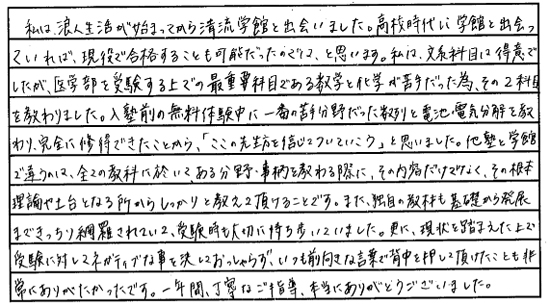 私は、浪人生活が始まってから清流学館と出会いました。高校時代に学館と出会っ
ていれば、現役で合格することも可能だったのでは、と思います。私は、文系科目は得意で
したが、医学部を受験する上での最重要科目である数学と化学が苦手だった為、その2科目
を教わりました。入塾前の無料体験中に一番の苦手分野だった数列と電池・電気分解を教
わり、完全に修得できたことから、「ここの先生方を信じてついていこう」と思いました。他塾と学館
で違うのは、全ての教科に於いて、ある分野・事柄を教わる際に、その内容だけでなく、その根本
理論や土台となる所からしっかりと教えて頂けることです。また、独自の教材も基礎から発展
まできっちり網羅されていて、受験時も大切に持ち歩いていました。更に、現状を踏まえた上で
受験に対してネガティブな事を決しておっしゃらず、いつも前向きな言葉で背中を押して頂けたことも非
常にありがたかったです。一年間、丁寧なご指導、本当にありがとうございました。